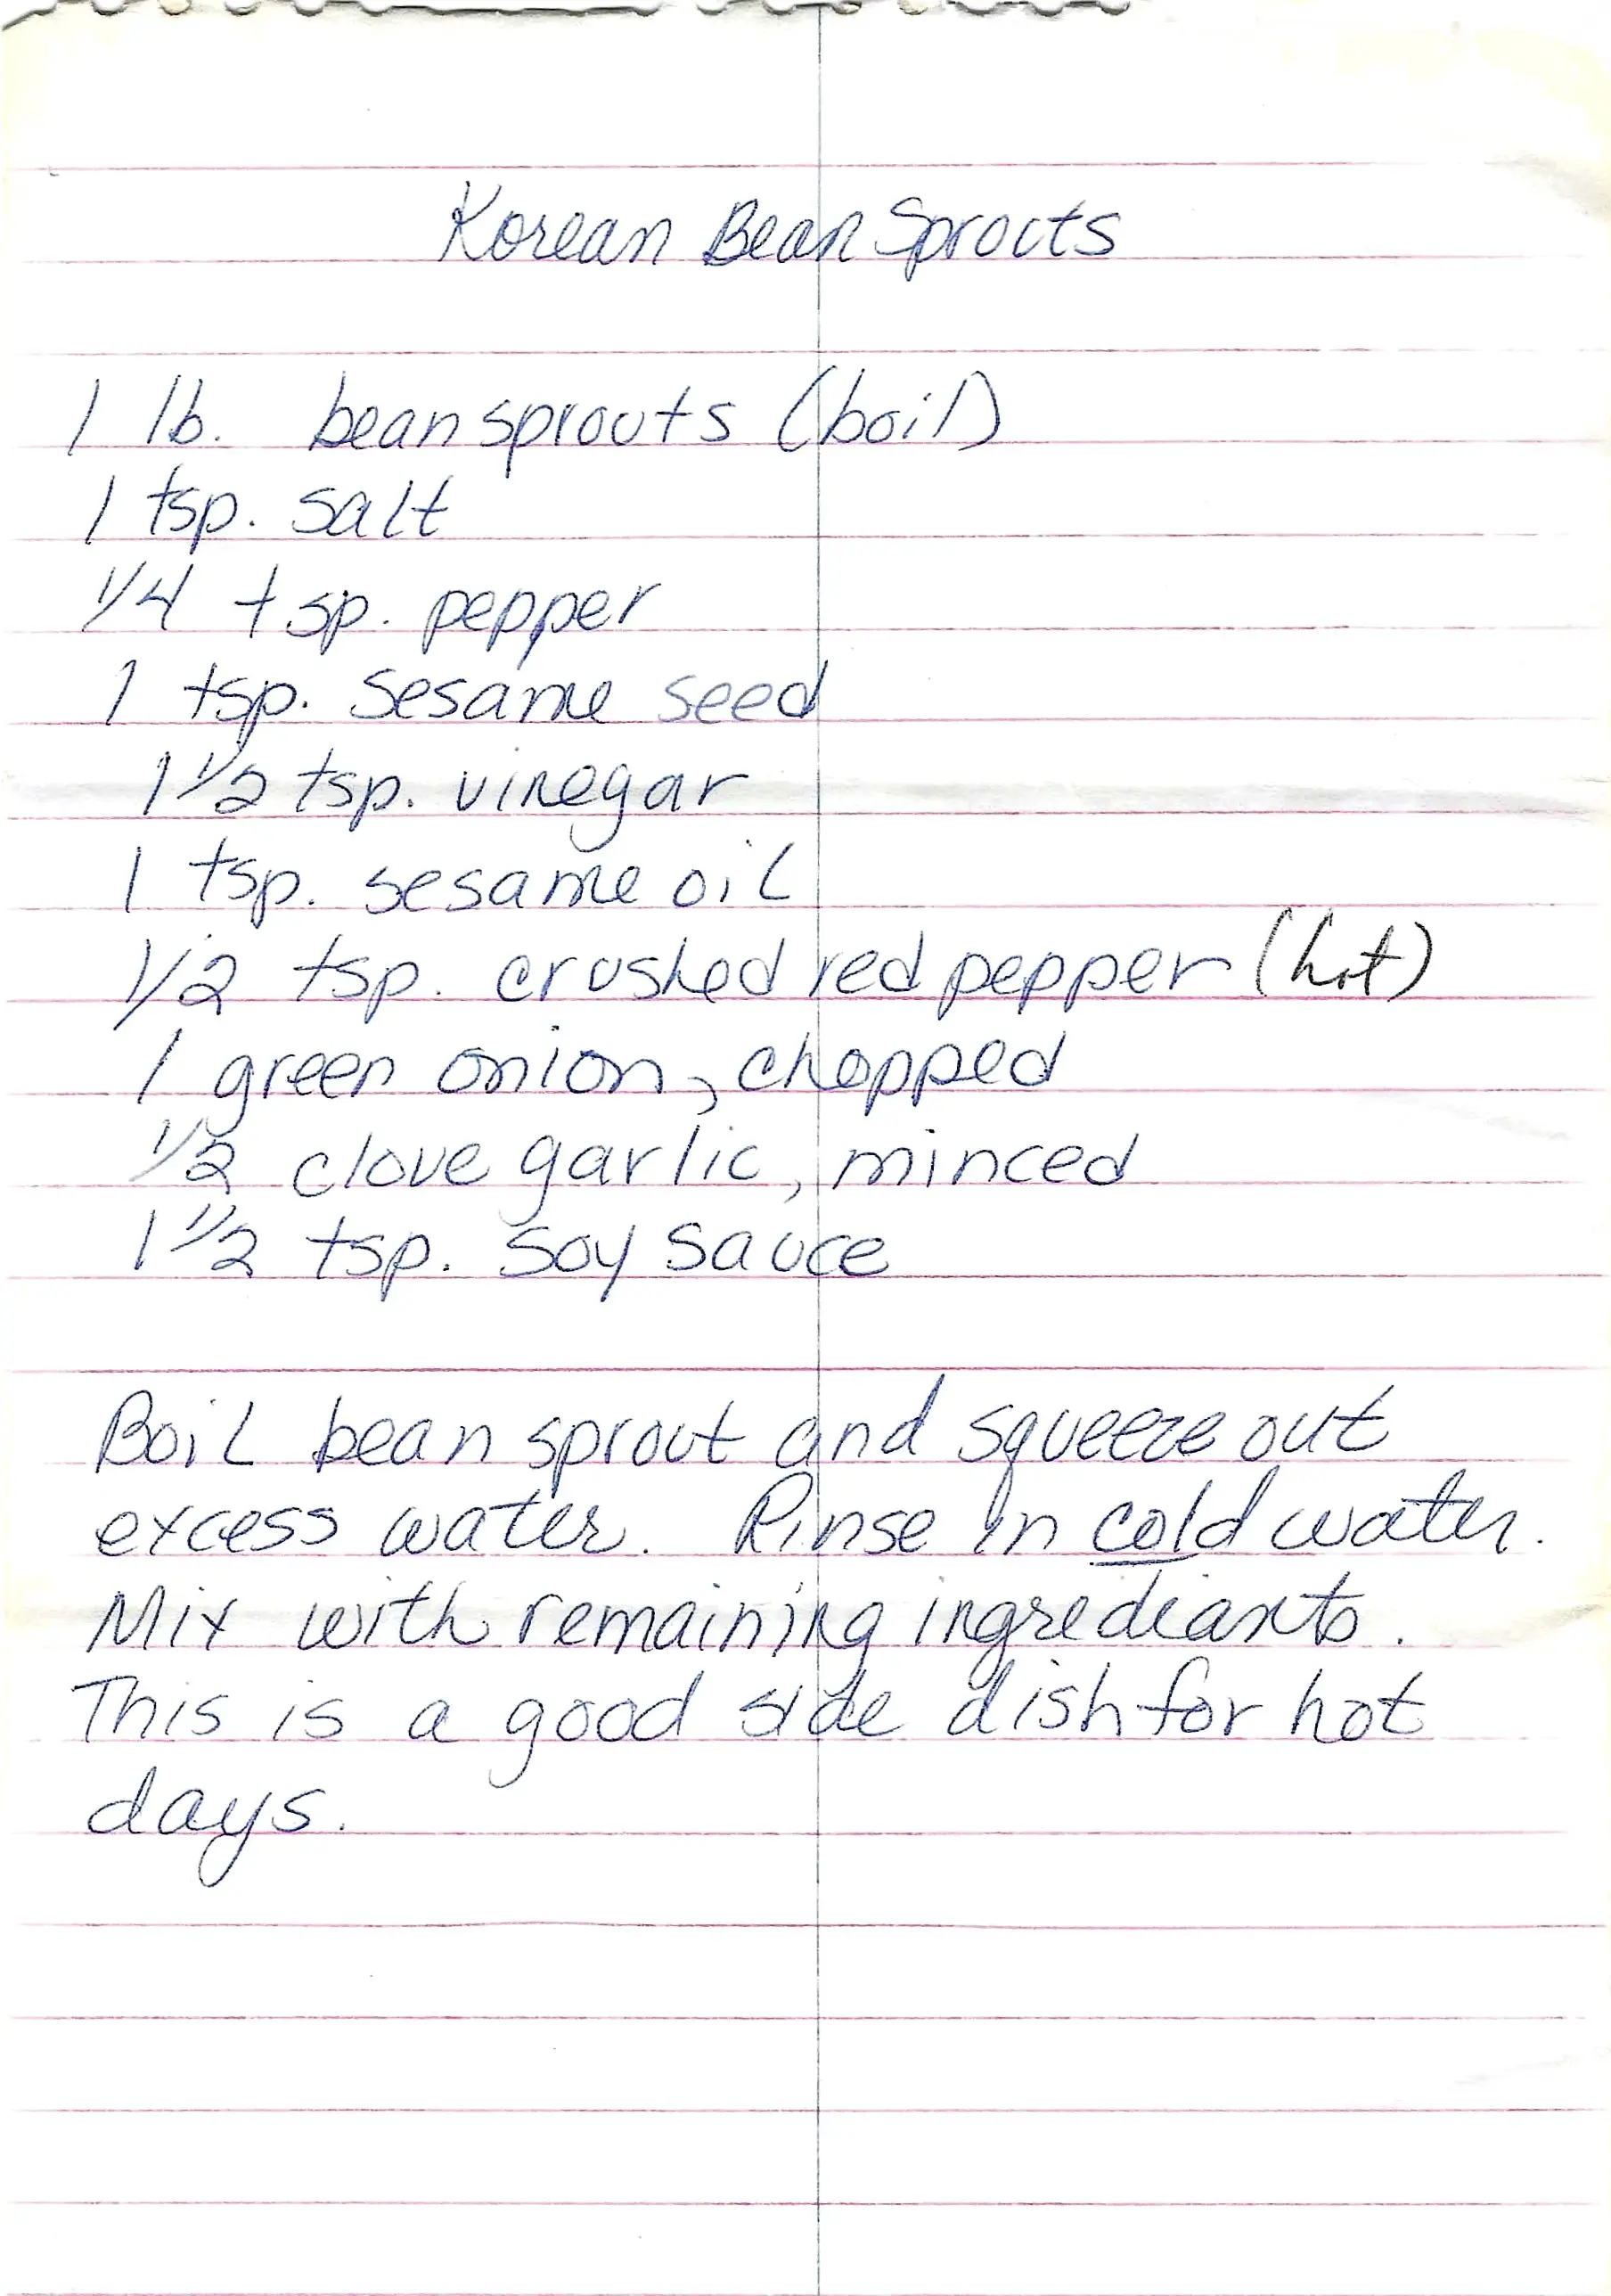 Korean Bean Sprouts
1 lb. bean sprouts (boil)
1 tsp. salt
1/4 tsp. pepper
1 tsp. sesame seed
1 1/2 tsp. vinegar
1 tsp. sesame oil
1/2 tsp. crushed red pepper (hot)
1 green onion, chopped
1/2 clove garlic, minced
1 1/2 tsp. soy sauce
Boil bean sprout and squeeze out
excess water. Rinse in cold water.
Mix with remaining ingrediants.
This is a good side dish for hot
days.